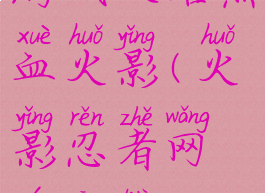 xuè huǒ yǐng huǒ
血火影(火
yǐng rěn zhě wǎng
影忍者网